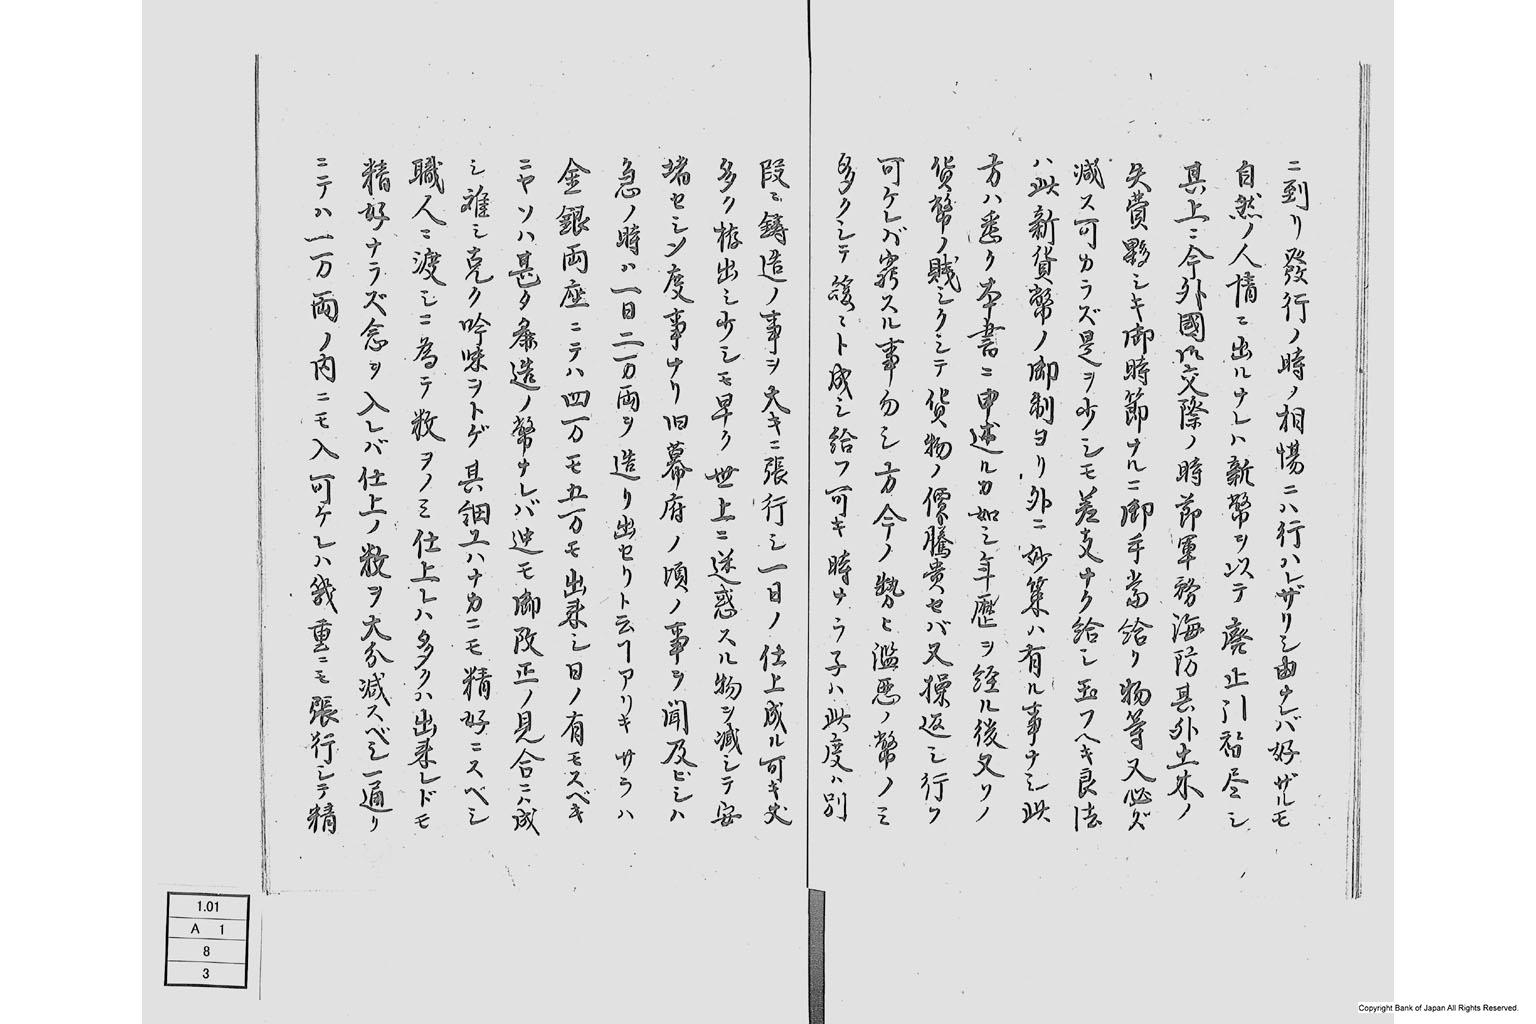 ニ到リ發行ノ時ノ相場ニハ行ハレザリシ由ナレバ好ザルモ
自然ノ人情ニ出ルナレハ新幣ヲ以テ廃止引替尽シ
其上ニ今外國御交際ノ時節軍務海防其外土木ノ
失費夥シキ御時節ナルニ御手當給リ物等又必ズ
減ス可カラズ是ヲ少シモ差支ナク給シ玉フヘキ良法
ハ此新貨幣ノ御制ヨリ外ニ妙策ハ有ル事ナシ此
方ハ悉ク本書ニ申述ルカ如シ年歴ヲ経ル後又リノ
貨幣ノ賎シクシテ貨物ノ價騰貴セバ又操返シ行フ
可ケレバ窮スル事勿シ方今ノ勢ヒ濫悪ノ幣ノミ
多クシテ緩ミト成シ給フ可キ時ナラ子ハ此度ハ別
段ニ鋳造ノ事ヲ大キニ張行シ一日ノ仕上成ル可キ丈
多ク拵出シ少シモ早ク世上ニ迷惑スル物ヲ減シテ安
堵セシン度事ナリ旧幕府ノ頃ノ事ヲ聞及ビシハ
急ノ時ハ一日二万両ヲ造リ出セリト云フアリキサラハ
金銀両座ニテハ四万モ五万モ出来シ日ノ有モスベキ
ニヤソハ甚タ麁造ノ幣ナレバ迚モ御改正ノ見合ニハ成
シ難シ克ク吟味ヲトゲ其細工ハナカニモ精好ニスベシ
職人ニ渡シニ為テ数ヲノミ仕上レハ多クハ出来レドモ
精好ナラズ念ヲ入レバ仕上ノ数ヲ大分減スベシ一通リ
ニテハ一万両ノ内ニモ入可ケレハ幾重ニモ張行シテ精
1.01
A 1
8
3
Copyright Bank of Japan All Rights Reserved.